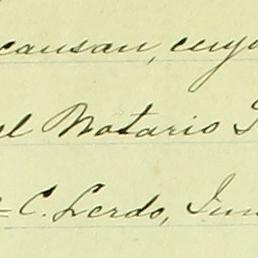 causan, cuyo
el Notario
C. Lerdo, Jun